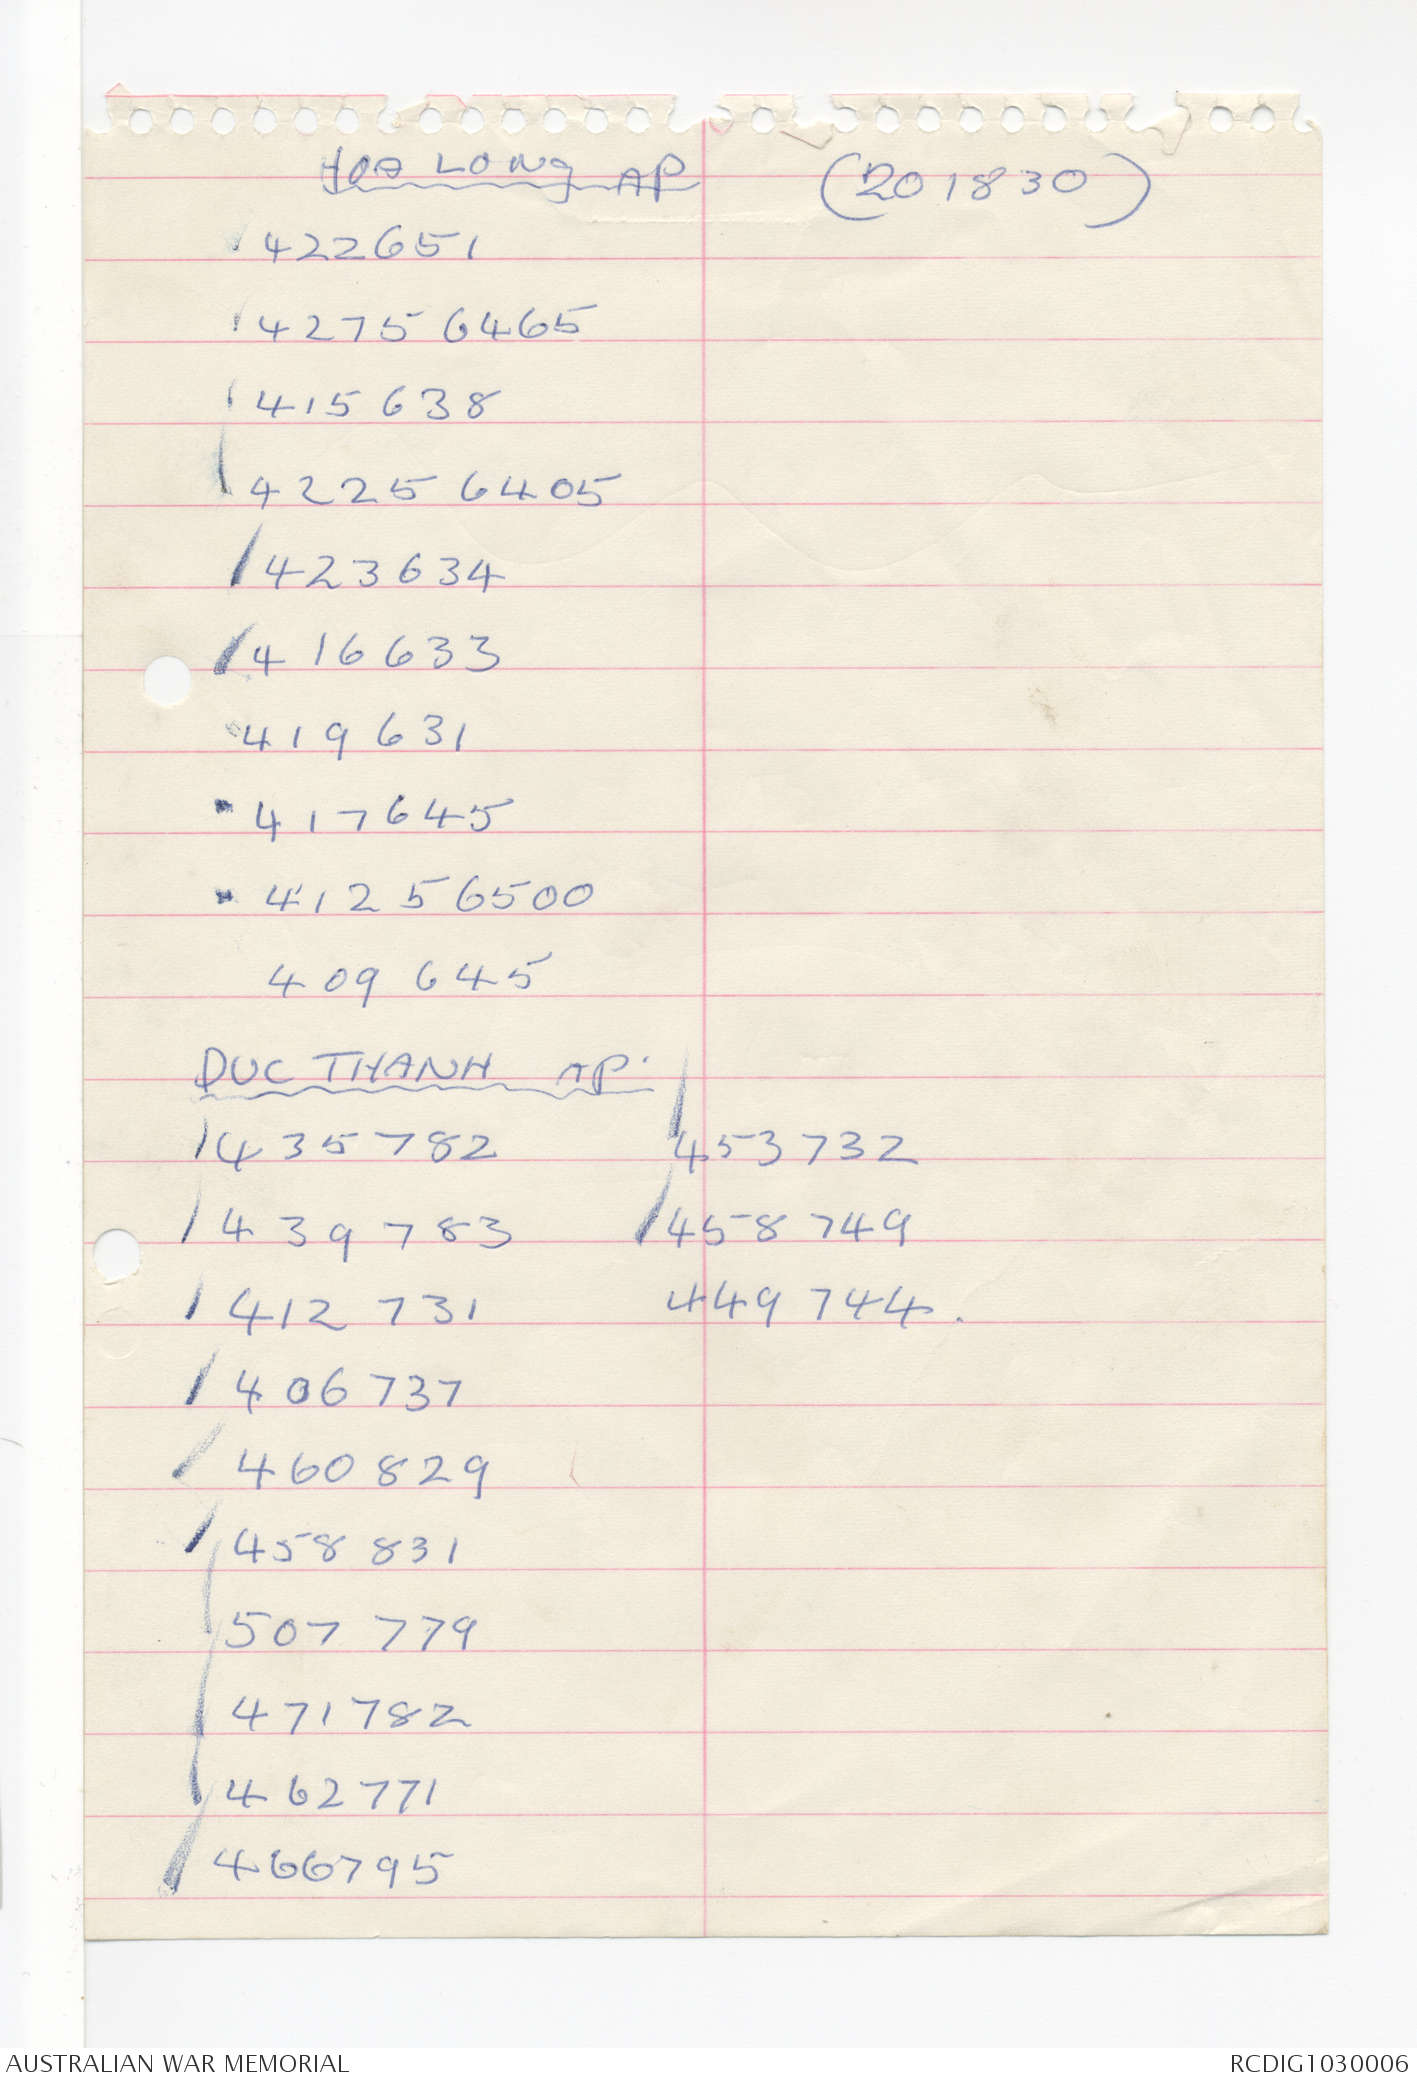 HOA LONG AP (201830)
422651
4275 6465
415 638
4225 6405
423634
416633
419 631
417645
4125 6500
409 645
DUC THANH AP.
435782
439 783
412 731
406737
460 829
458 831
507 779
471782
462771
466795
453732
458 749
449 744.
AUSTRALIAN WAR MEMORIAL
RCDIG1030006